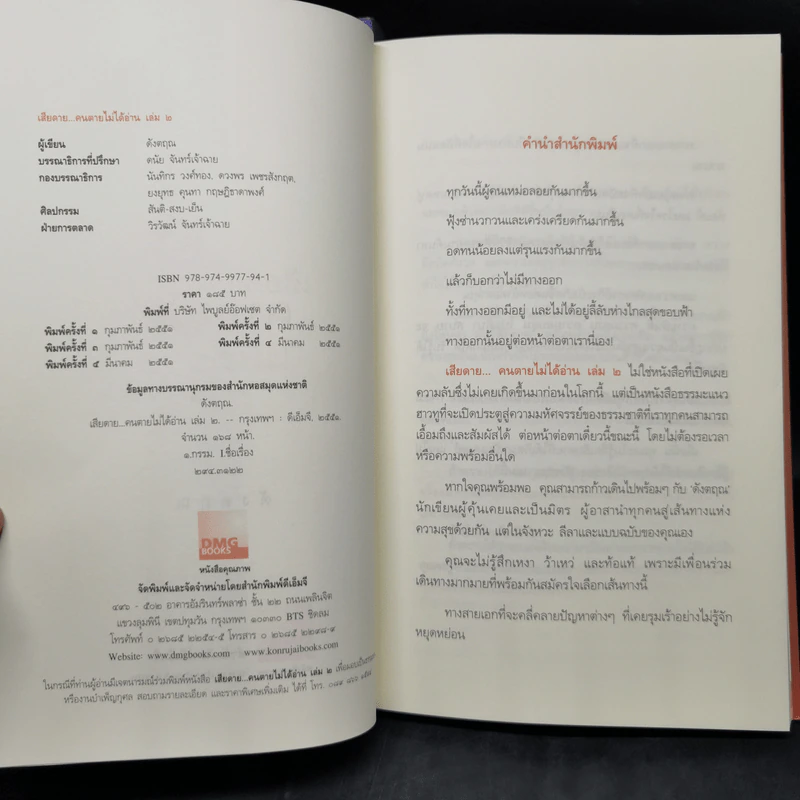 เสียดาย...คนตายไม่ได้อ่าน เล่ม ๒
ผู้เขียน ดังตฤณ
บรรณาธิการที่ปรึกษา ดนัย จันทร์เจ้าฉาย
กองบรรณาธิการ นันทิกร วงศ์ทอง, ดวงพร เพชรสังกฤต,
ยงยุทธ คุนทา กฤษฎิ์ธาดาพงศ์
ศิลปกรรม สันติ-สงบ-เย็น
ฝ่ายการตลาด วิรวัฒน์ จันทร์เจ้าฉาย
ISBN 978-974-9977-94-1
ราคา ๑๘๕ บาท
พิมพ์ที่ บริษัท ไพบูลย์อ๊อฟเซต จำกัด
พิมพ์ครั้งที่ ๑ กุมภาพันธ์ ๒๕๕๑ พิมพ์ครั้งที่ ๒ กุมภาพันธ์ ๒๕๕๑
พิมพ์ครั้งที่ ๓ กุมภาพันธ์ ๒๕๕๑ พิมพ์ครั้งที่ ๔ มีนาคม ๒๕๕๑
พิมพ์ครั้งที่ ๕ มีนาคม ๒๕๕๑
ข้อมูลทางบรรณานุกรมของสำนักหอสมุดแห่งชาติ
ดังตฤณ.
เสียดาย...คนตายไม่ได้อ่าน เล่ม ๒. -- กรุงเทพฯ : ดีเอ็มจี, ๒๕๕๑.
จำนวน ๑๖๘ หน้า.
๑.กรรม. I.ชื่อเรื่อง
๒๙๔.๓๑๒๒
DMG
BOOKS
หนังสือคุณภาพ
จัดพิมพ์และจัดจำหน่ายโดยสำนักพิมพ์ดีเอ็มจี
๔๙๖ - ๕๐๒ อาคารอัมรินทร์พลาซ่า ชั้น ๒๒ ถนนเพลินจิต
แขวงลุมพินี เขตปทุมวัน กรุงเทพฯ ๑๐๓๓๐ BTS ชิดลม
โทรศัพท์ ๐ ๒๖๘๕ ๒๒๕๔-๕ โทรสาร ๐ ๒๖๘๕ ๒๒๙๘-๙
Website: www.dmgbooks.com www.konrujaibooks.com
ในกรณีที่ท่านผู้อ่านมีเจตนารมณ์ร่วมพิมพ์หนังสือ เสียดาย...คนตายไม่ได้อ่าน เล่ม ๒ เพื่อมอบเป็น
หรืองานบำเพ็ญกุศล สอบถามรายละเอียด และราคาพิเศษเพิ่มเติม ได้ที่ โทร.
คำนำสำนักพิมพ์
ทุกวันนี้ผู้คนเหม่อลอยกันมากขึ้น
ฟุ้งซ่านวกวนและเคร่งเครียดกันมากขึ้น
อดทนน้อยลงแต่รุนแรงกันมากขึ้น
แล้วก็บอกว่าไม่มีทางออก
ทั้งที่ทางออกมีอยู่ และไม่ได้อยู่ลี้ลับห่างไกลสุดขอบฟ้า
ทางออกนั้นอยู่ต่อหน้าต่อตาเรานี่เอง!
เสียดาย... คนตายไม่ได้อ่าน เล่ม ๒ ไม่ใช่หนังสือที่เปิดเผย
ความลับซึ่งไม่เคยเกิดขึ้นมาก่อนในโลกนี้ แต่เป็นหนังสือธรรมะแนว
ฮาวทูที่จะเปิดประตูสู่ความมหัศจรรย์ของธรรมชาติที่เราทุกคนสามารถ
เอื้อมถึงและสัมผัสได้ ต่อหน้าต่อตาเดี๋ยวนี้ขณะนี้ โดยไม่ต้องรอเวลา
หรือความพร้อมอื่นใด
หากใจคุณพร้อมพอ คุณสามารถก้าวเดินไปพร้อมๆ กับ 'ดังตฤณ'
นักเขียนผู้คุ้นเคยและเป็นมิตร ผู้อาสานำทุกคนสู่เส้นทางแห่ง
ความสุขด้วยกัน แต่ในจังหวะ ลีลาและแบบฉบับของคุณเอง
คุณจะไม่รู้สึกเหงา ว้าเหว่ และท้อแท้ เพราะมีเพื่อนร่วม
เดินทางมากมายที่พร้อมกันสมัครใจเลือกเส้นทางนี้
ทางสายเอกที่จะคลี่คลายปัญหาต่างๆ ที่เคยรุมเร้าอย่างไม่รู้จัก
หยุดหย่อน